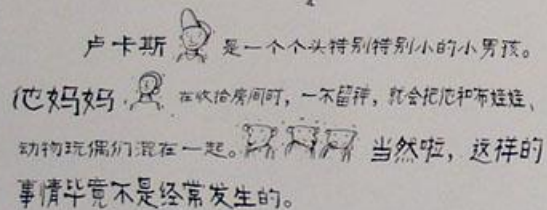 卢卡斯是一个个头特别特别小的小男孩。
他妈妈在收拾房间时，一不留神，就会把他和布娃娃、
动物玩偶们混在一起。当然啦，这样的
事情毕竟不是经常发生的。